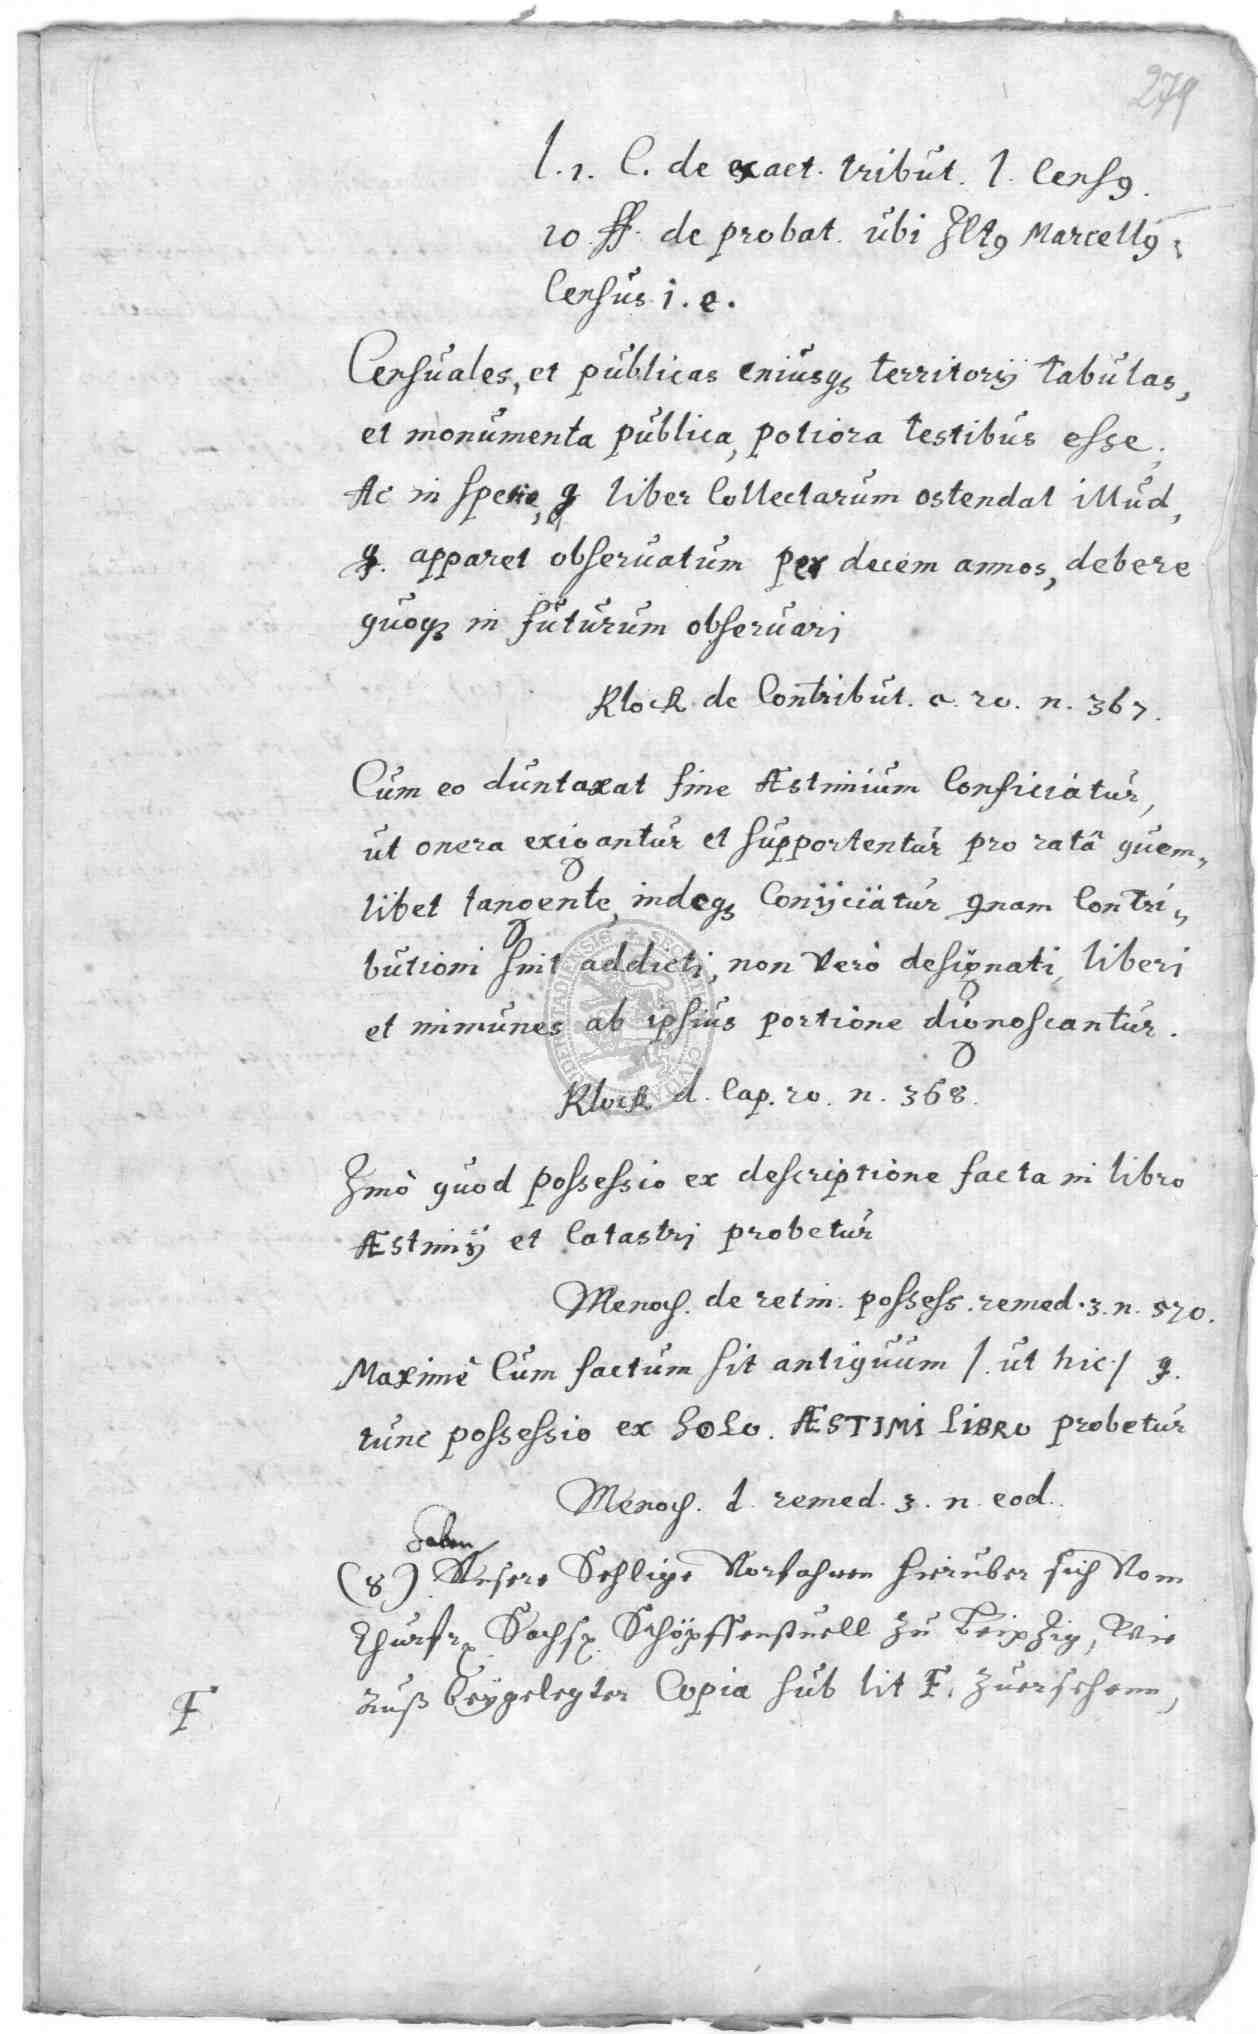 279
l. 1. C. de exact. tribut. l. Census.
10. ff. de probat. ubi Ictus Marcellus:
Census i. e.
Censuales, et publicas cuiusq; territorij tabulas,
et monumenta publica, potiora testibus esse.
Ac in specie, q liber Collectarum ostendat illud,
q. apparet observatum per decem annos, debere
quoq; in futurum observari
Klock de Contribut. c. 20. n. 367.
Cum eo duntaxat fine Æstimium Conficiatur,
ut onera exigantur et supportentur pro ratâ quem-
libet tangente, indeq; Conijciatur qnam Contri-
butioni sint addicti, non verò designati, liberi
et immunes ab ipsius portione dignoscantur.
Klock d. Cap. 20. n. 368.
Imò quod possessio ex descriptione facta in libro
Æstimij et Catastri probetur
Menoch. de retin. possess. remed. 3. n. 570.
Maximè Cum factum sit antiquum /. ut hic ./ q.
tunc possessio ex SOLO. ÆSTIMI LIBRO probetur
Menoch. d. remed. 3. n. eod.
haben
(8) Unsere Sehlige Vorfahren hierüber sich Vom
Churfr. Sachs. Schöpffenstuell zu Leipzig, Wie
auß beygelegter Copia sub lit F. zuersehenn,
F